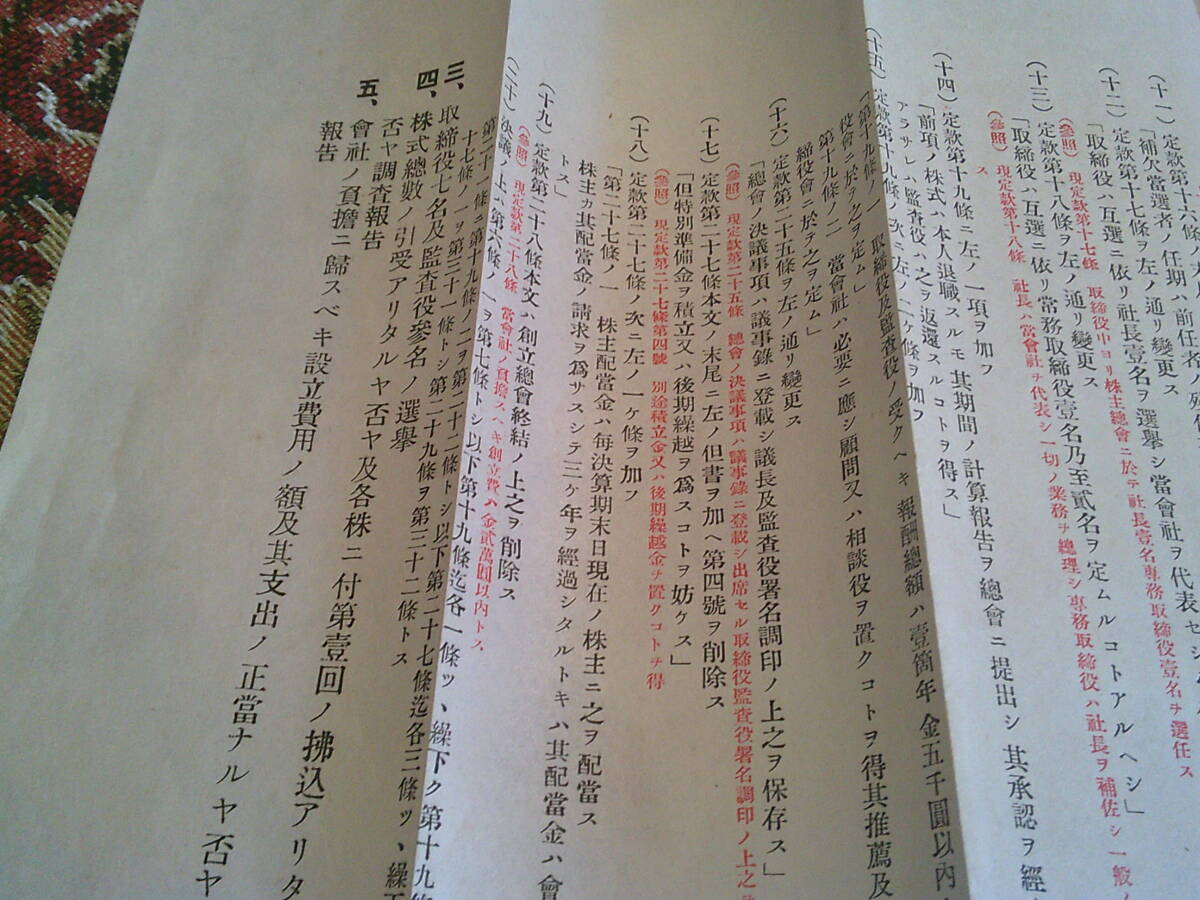 (十一) 定款第十六條ヲ左ノ
「補欠當選者ノ任期ハ前任者ノ
(十二) 定款第十七條ヲ左ノ通リ變更ス
「取締役ハ互選ニ依リ社長壹名ヲ選擧シ當會社ヲ代表セシ
(參照) 現定款第十七條 取締役中ヨリ株主總會ニ於テ社長壹名專務取締役壹名ヲ選任ス
(十三) 定款第十八條ヲ左ノ通リ變更ス
「取締役ハ互選ニ依リ常務取締役壹名乃至貳名ヲ定ムルコトアルヘシ」
(參照) 現定款第十八條 社長ハ當會社ヲ代表シ一切ノ業務ヲ總理シ專務取締役ハ社長ヲ補佐シ一般ノ
ス
(十四) 定款第十九條ニ左ノ一項ヲ加フ
「前項ノ株式ハ本人退職スルモ其期間ノ計算報告ヲ總會ニ提出シ其承認ヲ經
アラサレハ監査役ハ之ヲ返還スルコトヲ得ス」
(十五) 定款第十九條ノ次ニ左ノ二ケ條ヲ加フ
「第十九條ノ一 取締役及監査役ノ受クヘキ報酬總額ハ壹箇年金五千圓以内
役會ニ於テ之ヲ定ム」
第十九條ノ二 當會社ハ必要ニ應シ顧問又ハ相談役ヲ置クコトヲ得其推薦及
締役會ニ於テ之ヲ定ム」
(十六) 定款第二十五條ヲ左ノ通リ變更ス
「總會ノ決議事項ハ議事錄ニ登載シ議長及監査役署名調印ノ上之ヲ保存ス」
(參照) 現定款第二十五條 總會ノ決議事項ハ議事錄ニ登載シ出席セル取締役監査役署名調印ノ上之
(十七) 定款第二十七條本文ノ末尾ニ左ノ但書ヲ加ヘ第四號ヲ削除ス
「但特別準備金ヲ積立又ハ後期繰越ヲ爲スコトヲ妨ケス」
(參照) 現定款第二十七條第四號 別途積立金又ハ後期繰越金ヲ置クコトヲ得
(十八) 定款第二十七條ノ次ニ左ノ一ケ條ヲ加フ
「第二十七條ノ一 株主配當金ハ每決算期末日現在ノ株主ニ之ヲ配當ス
株主カ其配當金ノ請求ヲ爲サスシテ三ケ年ヲ經過シタルトキハ其配當金ハ會
トス」
(十九) 定款第二十八條本文ハ創立總會終結ノ上之ヲ削除ス
(參照) 現定款第二十八條 當會社ノ負擔スヘキ創立費ハ金貳萬圓以内トス
(二十) 決議ノ上ハ第六條ノ一ヲ第七條トシ以下第十九條迄各一條ツヽ繰下ク第十九條
第二十一條ニ第十九條ノ二ヲ第二十二條トシ以下第二十七條迄各三條ツヽ繰
十七條ノ一ヲ第三十一條トシ第二十九條ヲ第三十二條トス
三、取締役七名及監査役參名ノ選擧
四、株式總數ノ引受アリタルヤ否ヤ及各株ニ付第壹回ノ拂込アリタ
否ヤ調査報告
五、會社ノ負擔ニ歸スベキ設立費用ノ額及其支出ノ正當ナルヤ否ヤ
報告